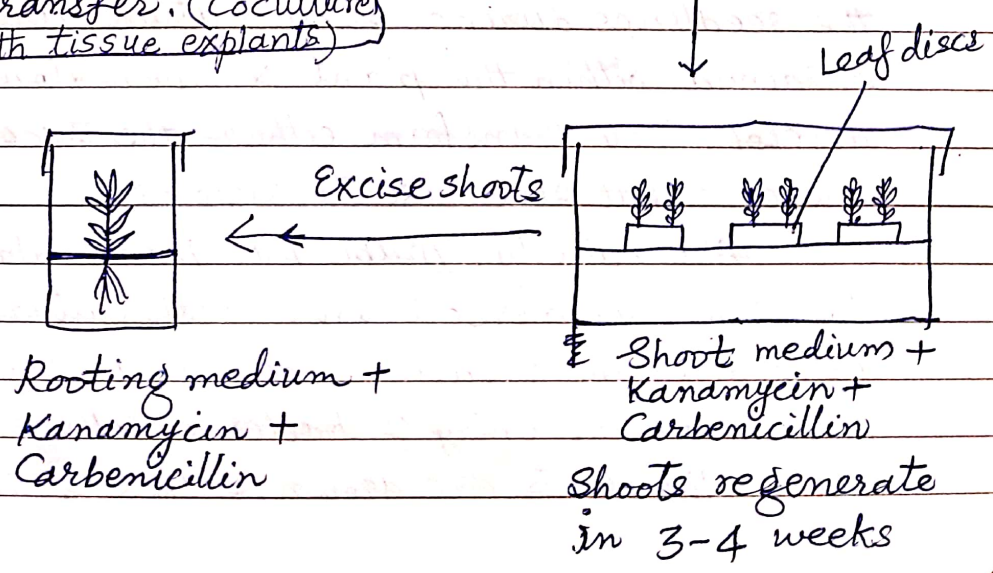 ransfer. (Coculture
th tissue explants)
Leaf discs
Excise shoots
Rooting medium +
Kanamycin +
Carbenicillin
Shoot medium +
Kanamycin +
Carbenicillin
Shoots regenerate
in 3-4 weeks